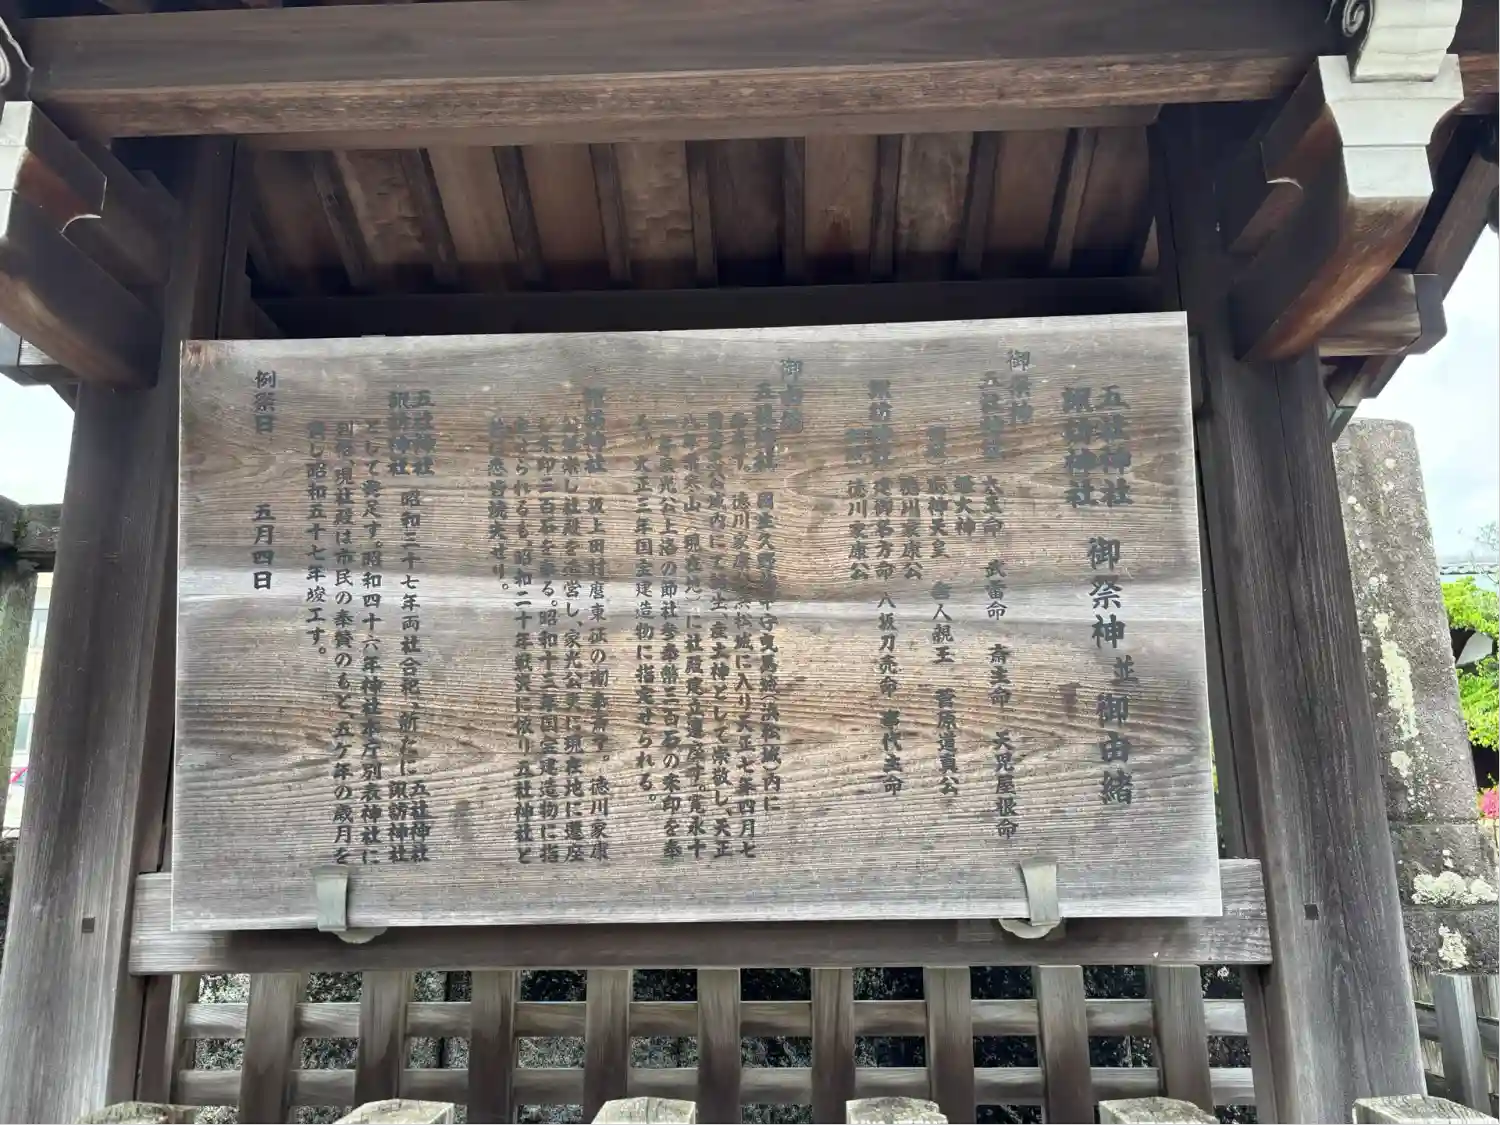 五社神社
諏訪神社 御祭神並御由緒
御祭神
五社神社 太玉命 武雷命 斎主命 天児屋根命
姫大神
応神天皇 舎人親王 菅原道真公
徳川家康公
諏訪神社 建御名方命 八坂刀売命 事代主命
徳川家康公
御由緒
五社神社 国主久野 守曳馬城(浜松城)内に
徳川家康 浜松城に入り天正七年四月七
公城内にて誕生 産土神として崇敬し、天正
八年 常寒山(現在地)に社殿建立遷座す。寛永十
家光公上洛の節社参奉幣三百石の朱印を奉
る。大正三年国宝建造物に指定せられる。
諏訪神社 坂上田村麿東征の砌奉斎す。徳川家康
公 崇し社殿を造営し、家光公更に現在地に遷座
し朱印三百石を奉る。昭和十三年国宝建造物に指
定せられるも、昭和二十年戦災に依り五社神社と
共に悉皆焼失せり。
五社神社
諏訪神社 昭和三十七年両社合祀、新たに 五社神社
諏訪神社
として発足す。昭和四十六年神社本庁別表神社に
列格、現社殿は市民の奉賛のもと、五ケ年の歳月を
費し昭和五十七年竣工す。
例祭日 五月四日